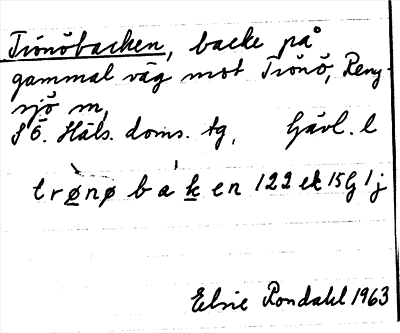 Trönöbacken, backe på
gammal väg mot Trönö, Reng-
sjö m,
S Ö. Häls. doms. tg, Gävl. l
trønø b a k e n 122 ek 15G 1j
Elsie Rondahl 1963